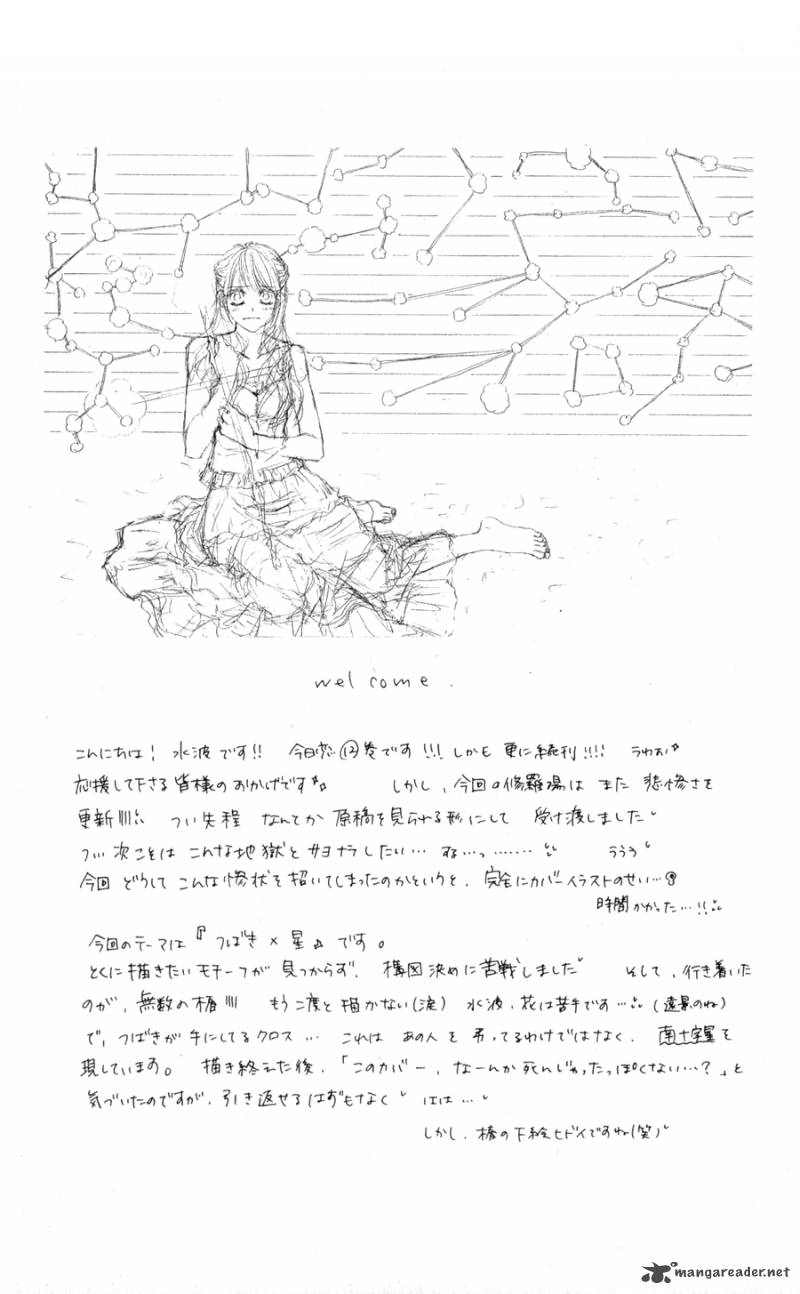 welcome.
こんにちは! 水波です!! 今日で⑫巻です!!! しかも 更に続刊!!!! うわぉ
応援して下さる皆様のおかげです しかし、今回の修羅場は また 悲惨さを
更新!!! つい先程 なんとか 原稿を見られる形にして 受け渡しました
次こそは こんな地獄と サヨナラしたい… ううう
今回 どうして こんな惨状を招いてしまったのかというと、完全にカバーイラストのせい…
時間かかった…!!
今回のテーマは『つばき×星』です。
とくに描きたいモチーフが 見つからず、構図決めに苦戦しました そして、行き着いた
のが、無数の椿!!! もう二度と描かない(涙) 水波、花は苦手です… (遠景のね)
で、つばきが手にしてるクロス… これは あの人を 弔ってるわけではなく、南十字星を
現しています。 描き終えた後、「このカバー、なーんか死んじゃったっぽくない…?」と
気づいたのですが、引き返せるはずもなく はは…
しかし、椿の下絵ヒドイですね(笑)
mangareader.net